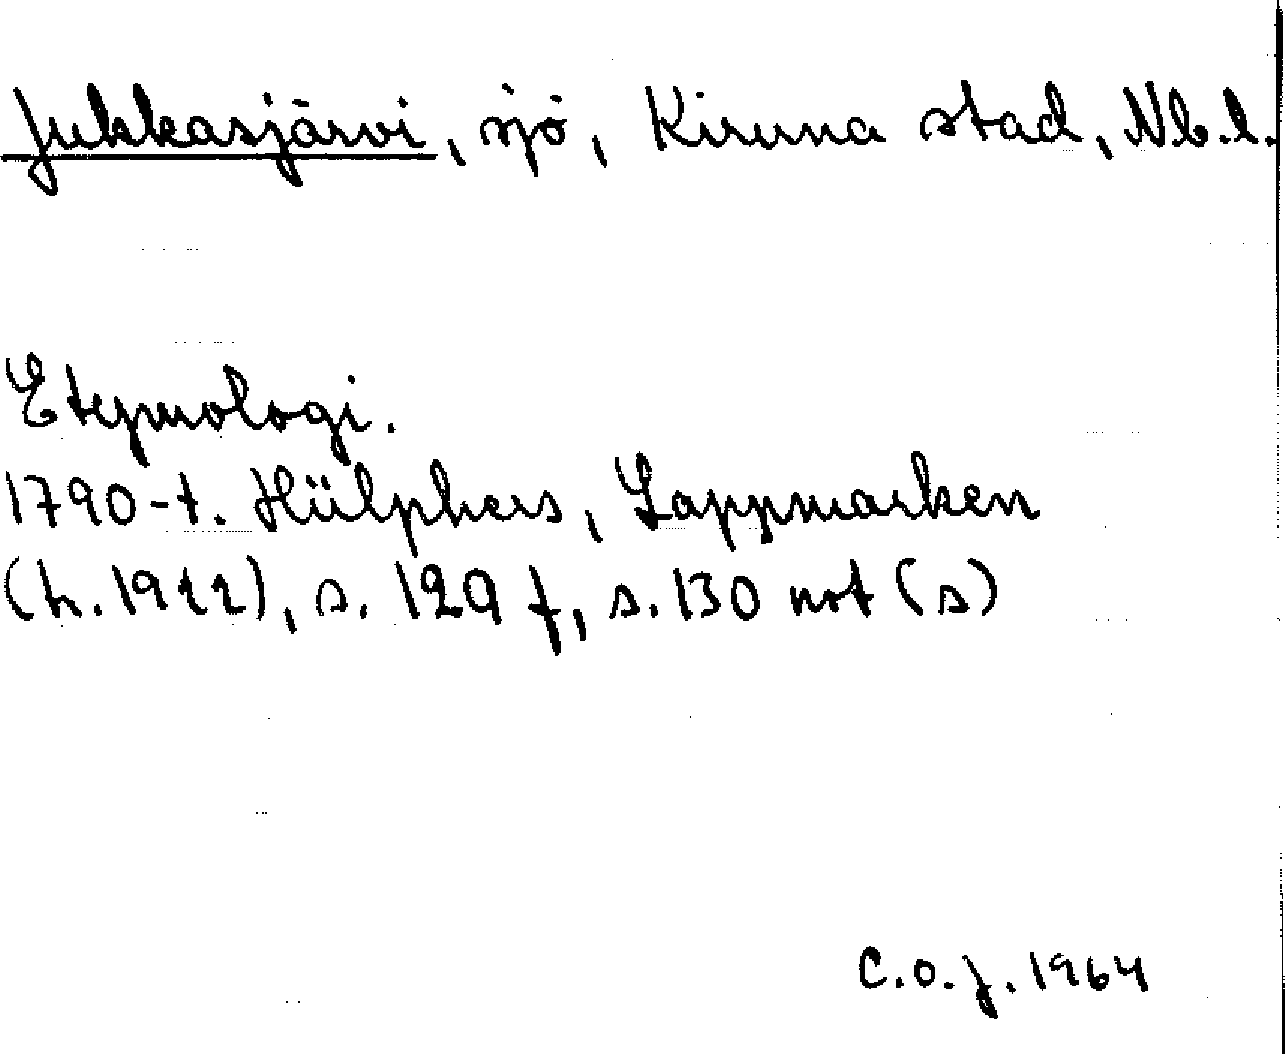 Jukkasjärvi, sjö, Kiruna stad, Nb.l.
Etymologi.
1790-t. Hülphers, Lappmarken
(h. 1922), s. 129 f, s. 130 not (s)
C.O.J. 1964